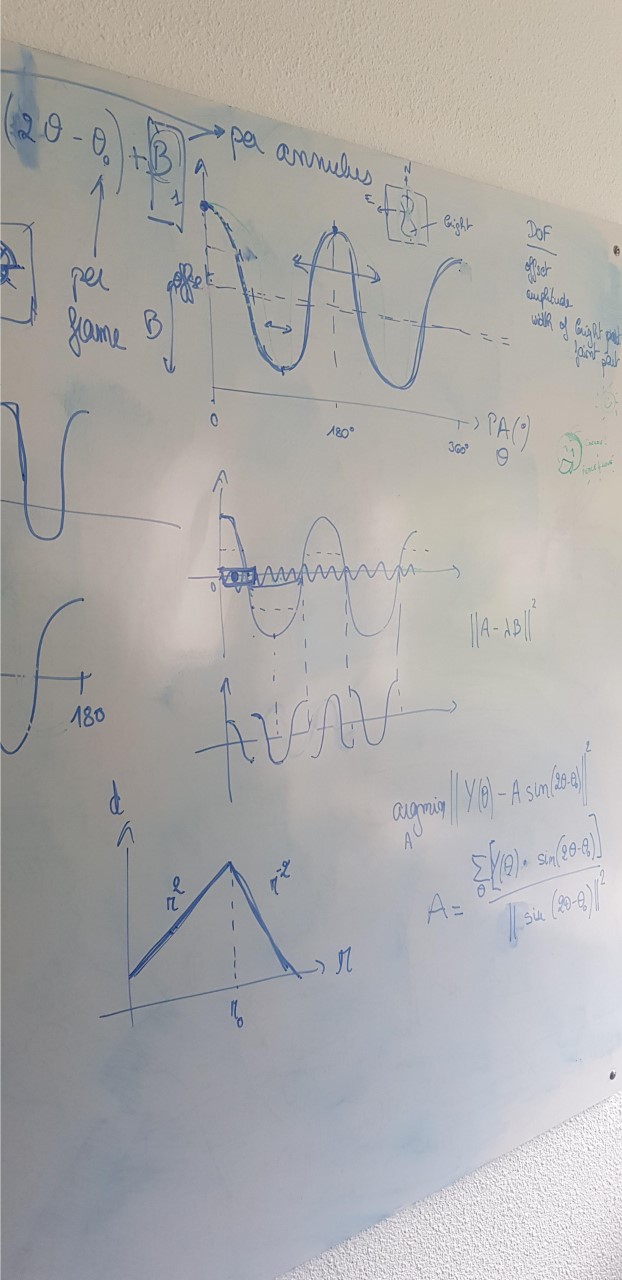 (2θ - θ₀) + B → per annulus
1
per
frame
offset
B
N
E
bright
0
180°
360°
PA (°)
θ
DoF
offset
amplitude
width of bright part
faint part
0
||A - λB||²
180
d
r²
r⁻²
r
r₀
argmin || Y(θ) - A sin(2θ-θ₀) ||²
A
A = Σ [Y(θ) · sin(2θ-θ₀)]
θ
|| sin (2θ-θ₀) ||²